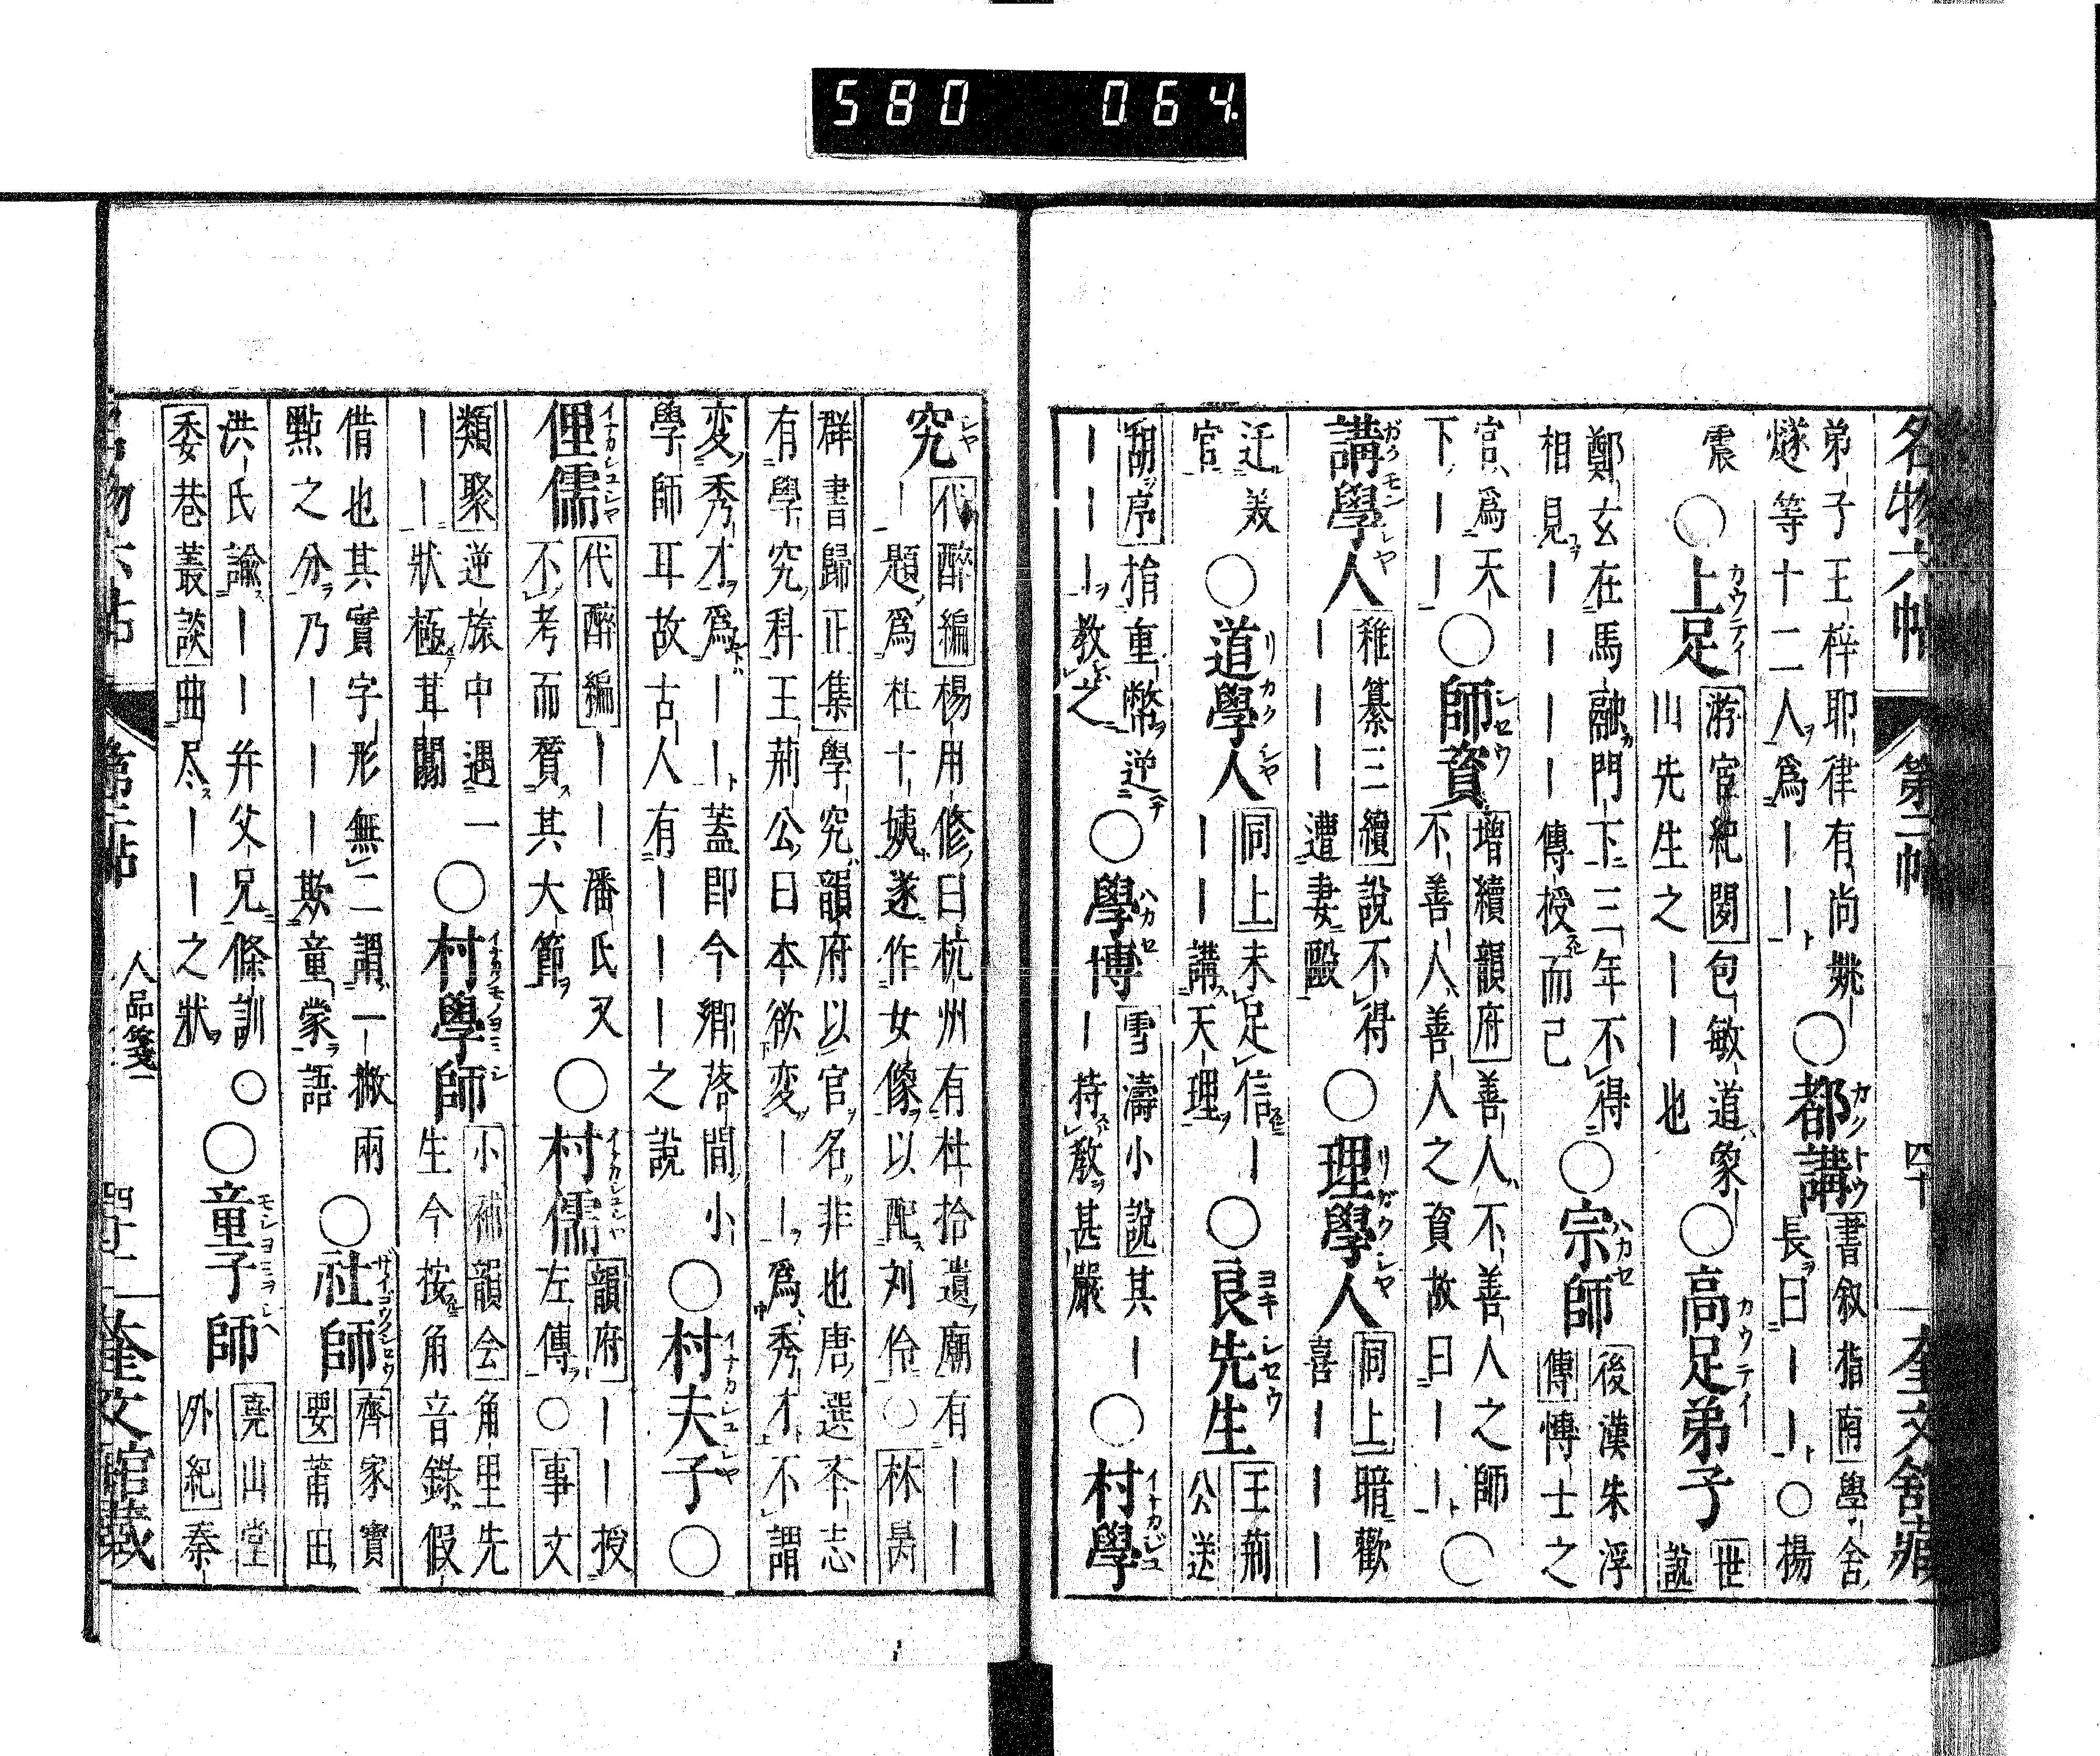 580 064.
名物六帖 第二帖 四十 奎文舘藏
弟子王梓耶律有尚姚
燧等十二人爲丨丨○都講書叙指南學舍
長曰丨丨○揚
震○上足游宦紀聞包敏道象
山先生之丨丨也○高足弟子世
說
鄭玄在馬融門下三年不得
相見丨丨丨丨傳授而已○宗師後漢朱浮
傳愽士之
官爲天
下丨丨○師資增續韻府善人不善人之師
不善人善人之資故曰丨丨○
講學人稚纂三續說不得
丨丨丨遭妻毆○理學人同上暗歡
喜丨丨丨
迂羙
官○道學人同上未足信丨
丨丨講天理○良先生王荊
公送
胡序措重幣逆
丨丨丨教之○學博雪濤小說其丨
丨持教甚嚴○村學
究代醉編楊用修曰杭州有杜拾遺廟有丨丨
丨題爲杜十姨遂作女像以配刘伶○林昺
群書歸正集學究韻府以官名非也唐選本志
有學究科王荊公曰本欲変丨丨爲秀才不謂
変秀才爲丨丨蓋即今鄉落間小
學師耳故古人有丨丨丨之說○村夫子○
俚儒代醉編丨丨潘氏又
不考而贅其大節○村儒韻府丨丨授
左傳○事文
類聚逆旅中遇一
丨丨狀極茸闒○村學師小補韻会角里先
生今按角音錄假
借也其實字形無二謂一撇兩
㸃之分乃丨丨丨欺童蒙語○社師齊家寶
要莆田
洪氏諭丨丨并父兄條訓○
委巷叢談曲尽丨丨之狀○童子師堯山堂
外紀秦
人品箋一
奎文舘藏